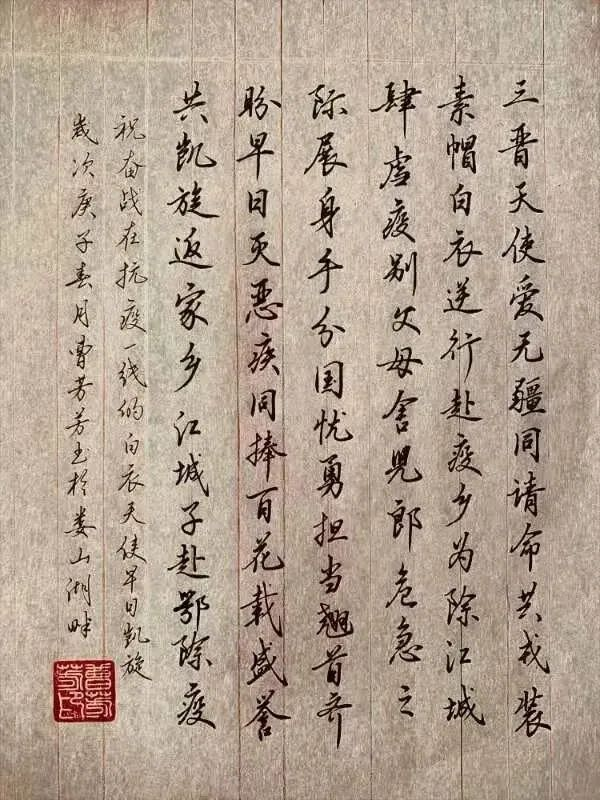 三晋天使爱无疆同请命共戎装
素帽白衣逆行赴疫乡为除江城
肆虐疫别父母舍兒郎危急之
际展身手分国忧勇担当翘首齐
盼早日灭恶疾同捧百花载盛誉
共凯旋返家乡 江城子赴鄂除疫
祝奋战在抗疫一线的白衣天使早日凯旋
歲次庚子春月曹芳芳书於娄山湖畔
曹芳芳印